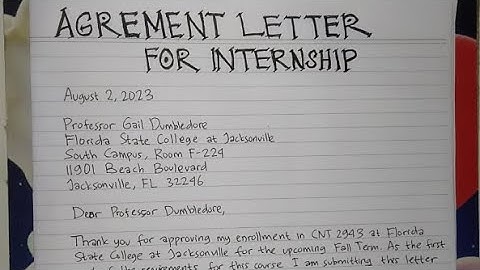 AGREMENT LETTER
FOR INTERNSHIP
August 2, 2023
Professor Gail Dumbledore
Florida State College at Jacksonville
South Campus, Room F-224
11901 Beach Boulevard
Jacksonville, FL 32246
Dear Professor Dumbledore,
Thank you for approving my enrollment in CNT 2943 at Florida
State College at Jacksonville for the upcoming Fall Term. As the first
requirements for this course I am submitting this letter